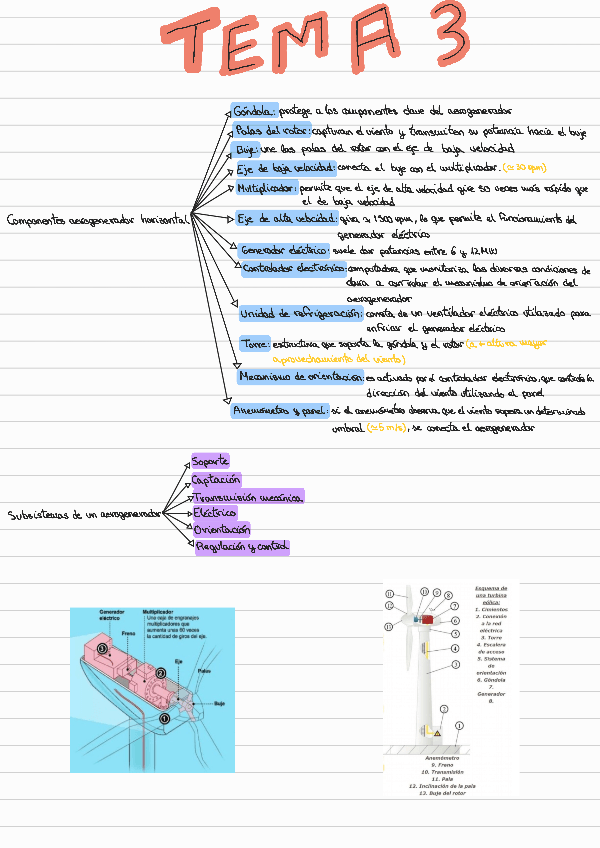 TEMA 3
Góndola: protege a los componentes clave del aerogenerador
Palas del rotor: capturan el viento y transmiten su potencia hacia el buje
Buje: une las palas del rotor con el eje de baja velocidad
Eje de baja velocidad: conecta el buje con el multiplicador. (≈ 30 rpm)
Multiplicador: permite que el eje de alta velocidad gire 50 veces más rápido que
el de baja velocidad
Componentes aerogenerador horizontal
Eje de alta velocidad: gira ≈ 1500 rpm, lo que permite el funcionamiento del
generador eléctrico
Generador eléctrico: suele dar potencias entre 6 y 12 MW
Controlador electrónico: computadora que monitoriza las diversas condiciones de
para controlar el mecanismo de orientación del
aerogenerador
Unidad de refrigeración: consta de un ventilador eléctrico utilizado para
enfriar el generador eléctrico
Torre: estructura que soporta la góndola y el rotor (a + altura mayor
aprovechamiento del viento)
Mecanismo de orientación: es activado por el controlador electrónico, que controla la
dirección del viento utilizando el panel
Anemómetro y panel: si el anemómetro observa que el viento supera un determinado
umbral (≈ 5 m/s), se conecta el aerogenerador
Soporte
Captación
Transmisión mecánica
Subsistemas de un aerogenerador
Eléctrico
Orientación
Regulación y control
Generador
eléctrico
Multiplicador
Una caja de engranajes
multiplicadores que
aumenta unas 60 veces
la cantidad de giros del eje.
Freno
Eje
Palas
Buje
3
2
1
11
10
9
8
12
7
6
13
5
4
3
2
1
Esquema de
una turbina
eólica:
1. Cimientos
2. Conexión
a la red
eléctrica
3. Torre
4. Escalera
de acceso
5. Sistema
de
orientación
6. Góndola
7.
Generador
8.
Anemómetro
9. Freno
10. Transmisión
11. Pala
12. Inclinación de la pala
13. Buje del rotor